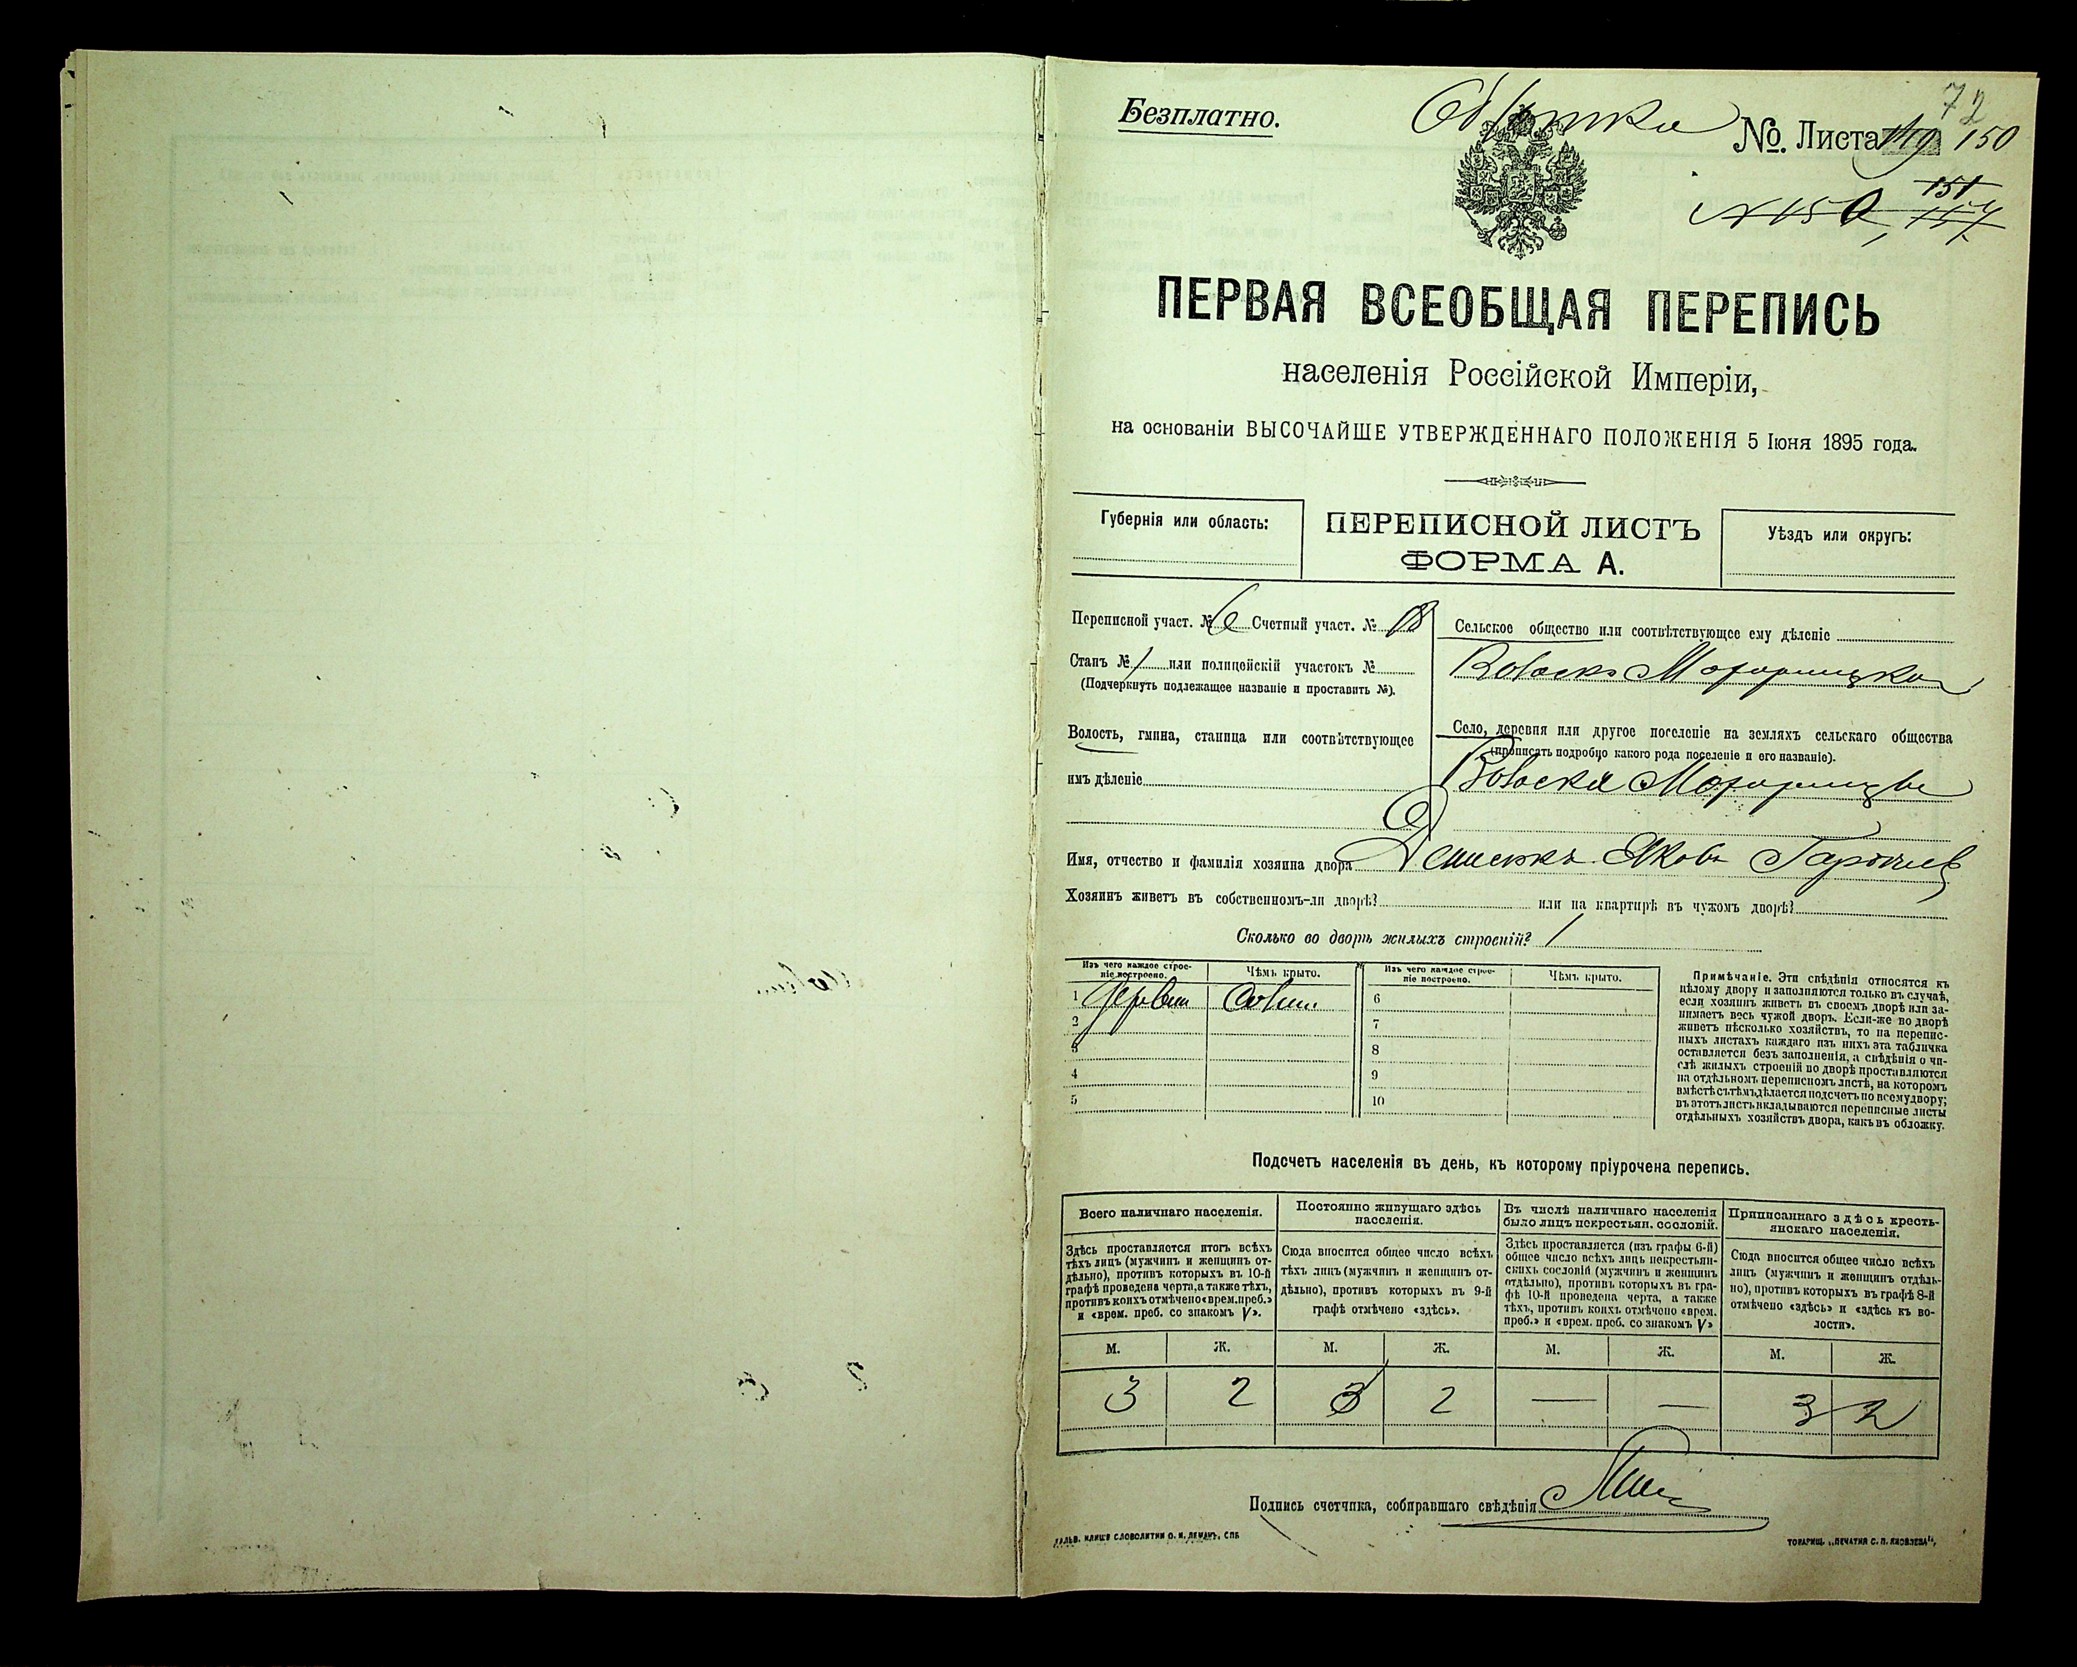 Безплатно.
72
№. Листа 149 150
№ 150, 151
ПЕРВАЯ ВСЕОБЩАЯ ПЕРЕПИСЬ
населенія Россійской Имперіи,
на основаніи ВЫСОЧАЙШЕ УТВЕРЖДЕННАГО ПОЛОЖЕНІЯ 5 Іюня 1895 года.
Губернія или область:
ПЕРЕПИСНОЙ ЛИСТЪ
ФОРМА А.
Уѣздъ или округъ:
Переписной участ. № 6 Счетный участ. № 18
Станъ № 1 или полицейскій участокъ №
(Подчеркнуть подлежащее названіе и проставить №).
Волость, гмина, станица или соотвѣтствующее
имъ дѣленіе
Сельское общество или соотвѣтствующее ему дѣленіе
Село, деревня или другое поселеніе на земляхъ сельскаго общества
(прописать подробно какого рода поселеніе и его названіе).
Имя, отчество и фамилія хозяина двора Яковъ
Хозяинъ живетъ въ собственномъ-ли дворѣ? или на квартирѣ въ чужомъ дворѣ?
Сколько во дворѣ жилыхъ строеній? 1
Изъ чего каждое строе-
ніе построено.
Чѣмъ крыто.
Изъ чего каждое строе-
ніе построено.
Чѣмъ крыто.
1 6
2 7
3 8
4 9
5 10
Примѣчаніе. Эти свѣдѣнія относятся къ
цѣлому двору и заполняются только въ случаѣ,
если хозяинъ живетъ въ своемъ дворѣ или за-
нимаетъ весь чужой дворъ. Если-же во дворѣ
живетъ нѣсколько хозяйствъ, то на перепис-
ныхъ листахъ каждаго изъ нихъ эта табличка
оставляется безъ заполненія, а свѣдѣнія о чи-
слѣ жилыхъ строеній во дворѣ проставляются
на отдѣльномъ переписномъ листѣ, на которомъ
вмѣстѣ съ тѣмъ дѣлается подсчетъ по всему двору;
въ этотъ листъ вкладываются переписные листы
отдѣльныхъ хозяйствъ двора, какъ въ обложку.
Подсчетъ населенія въ день, къ которому пріурочена перепись.
Всего наличнаго населенія.
Здѣсь проставляется итогъ всѣхъ
тѣхъ лицъ (мужчинъ и женщинъ от-
дѣльно), противъ которыхъ въ 10-й
графѣ проведена черта, а также тѣхъ,
противъ коихъ отмѣчено «врем. преб.»
и «врем. преб. со знакомъ V».
Постоянно живущаго здѣсь
населенія.
Сюда вносится общее число всѣхъ
тѣхъ лицъ (мужчинъ и женщинъ от-
дѣльно), противъ которыхъ въ 9-й
графѣ отмѣчено «здѣсь».
Въ числѣ наличнаго населенія
было лицъ некрестьян. сословій.
Здѣсь проставляется (изъ графы 6-й)
общее число всѣхъ лицъ некрестьян-
скихъ сословій (мужчинъ и женщинъ
отдѣльно), противъ которыхъ въ гра-
фѣ 10-й проведена черта, а также
тѣхъ, противъ коихъ отмѣчено «врем.
преб.» и «врем. преб. со знакомъ V»
Приписаннаго здѣсь кресть-
янскаго населенія.
Сюда вносится общее число всѣхъ
лицъ (мужчинъ и женщинъ отдѣль-
но), противъ которыхъ въ графѣ 8-й
отмѣчено «здѣсь» и «здѣсь къ во-
лости».
М. Ж. М. Ж. М. Ж. М. Ж.
3 2 3 2 — — 3 2
Подпись счетчика, собиравшаго свѣдѣнія
ГАЛЬВ. КЛИШЭ СЛОВОЛИТНИ О. И. ЛЕМАНЪ, СПБ
ТОВАРИЩ. „ПЕЧАТНЯ С. П. ЯКОВЛЕВА“,